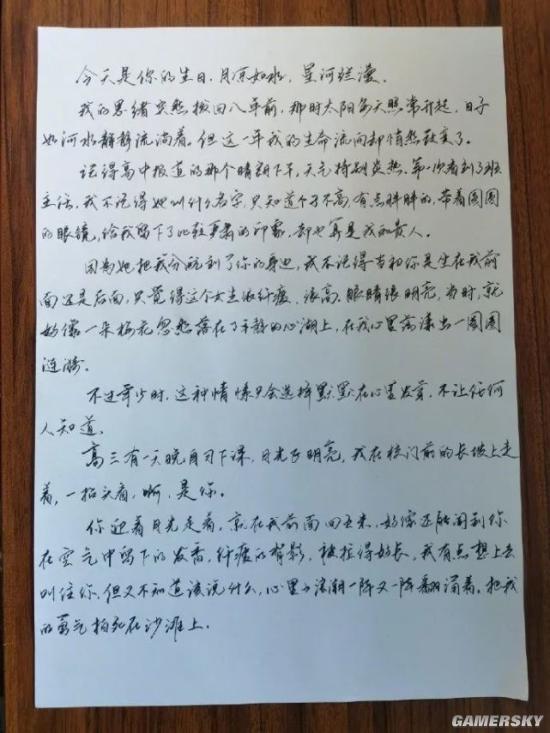 今天是你的生日，月凉如水，星河烂漫。
我的思绪突然搬回八年前，那时太阳每天照常升起，日子
如河水静静流淌着。但这一年我的生命流向却悄然改变了。
记得高中报道的那个晴朗下午，天气特别炎热。第一次看到了班
主任，我不记得她叫什么名字，只知道个子不高，有点胖胖的，带着圆圆
的眼镜，给我留下了比较严肃的印象，却也算是我的贵人。
因为她把我分配到了你的身边，我不记得当初你是坐在我前
面还是后面，只觉得这个女生很纤瘦，很高，眼睛很明亮，当时，就
好像一朵梅花忽然落在了平静的心湖上，在我心里荡漾出一圈圈
涟漪。
不过年少时，这种情愫只会选择默默在心里发芽，不让任何
人知道。
高三有一天晚自习下课，月光了明亮，我在校门前的长坡上走
着，一抬头看，啊，是你。
你迎着月光走着，就在我前面四五米，好像还能闻到你
在空气中留下的发香，纤瘦的背影，被拉得好长，我有点想上去
叫住你，但又不知道该说什么，心里的浪潮一阵又一阵翻涌着，把我
的勇气拍死在沙滩上。
GAMERSKY